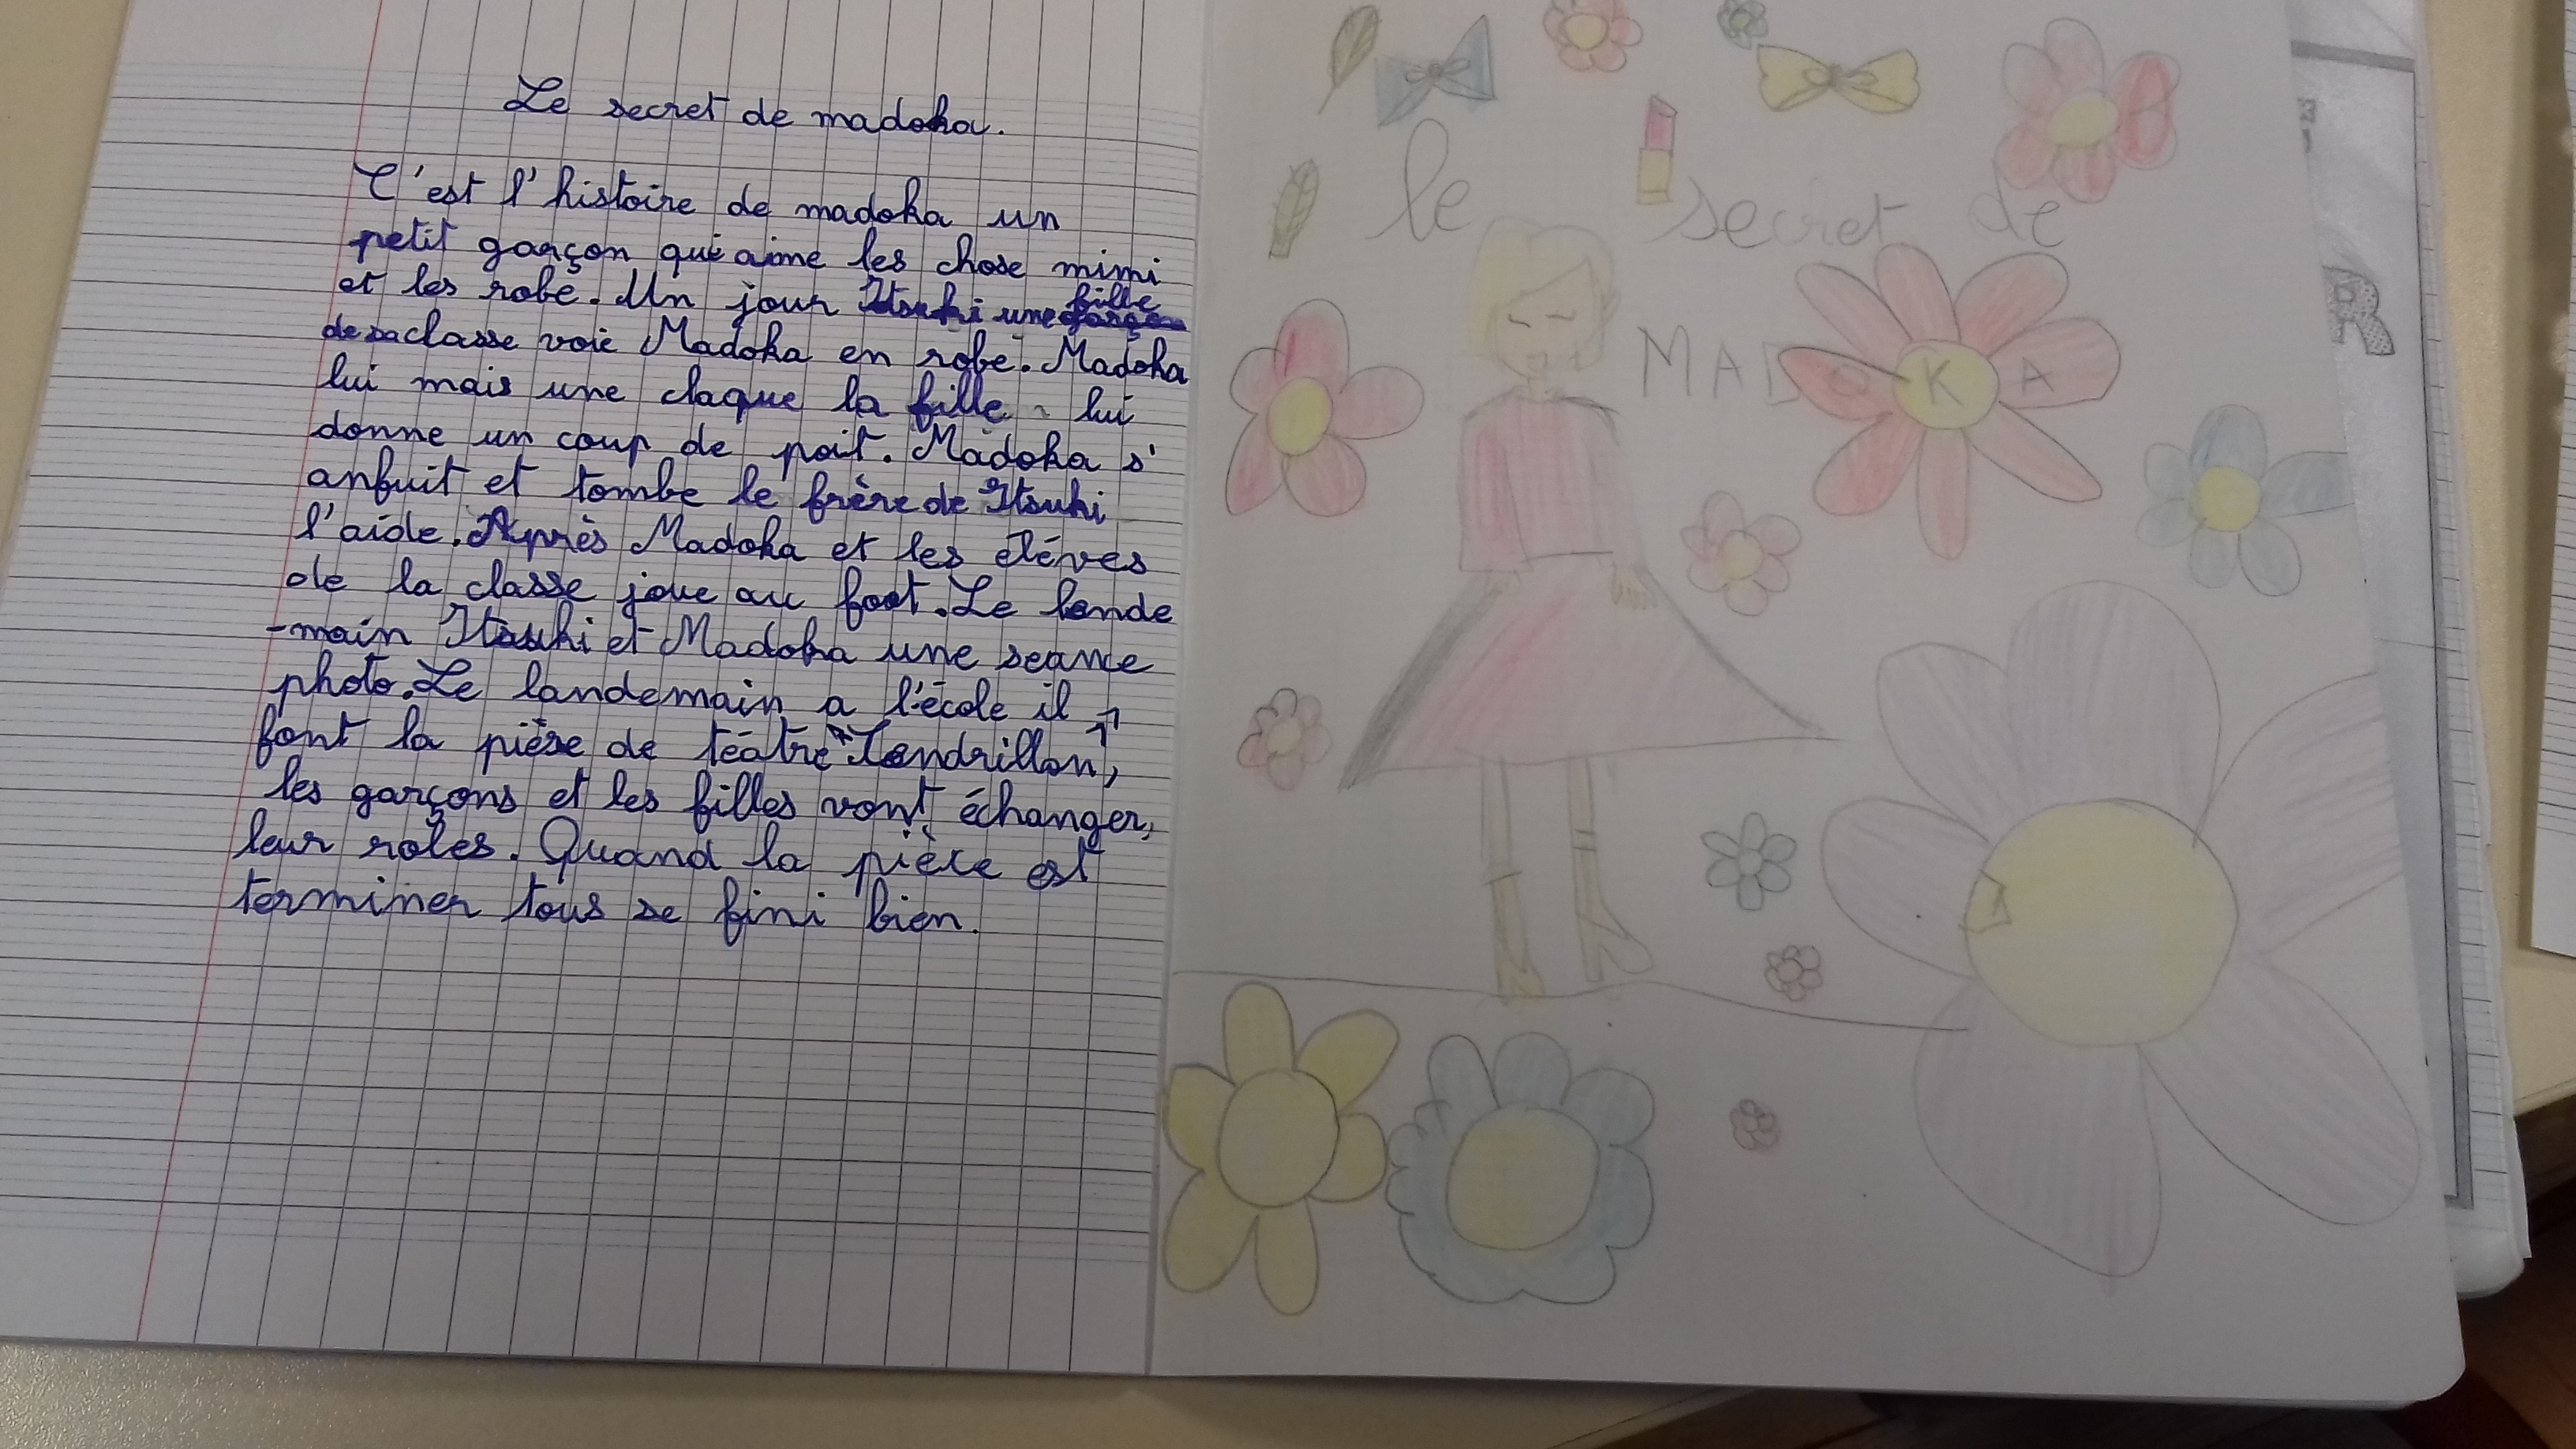 Le secret de madoka.
C'est l'histoire de madoka un
petit garçon qui aime les chose mimi
et les robe. Un jour Itsuki une fille
de sa classe voie Madoka en robe. Madoka
lui mais une claque la fille lui
donne un coup de poit. Madoka s'
anfuit et tombe le frère de Itsuki
l'aide. Après Madoka et les éléves
de la classe joue au foot. Le lende
-main Itsuki et Madoka une seance
photo. Le landemain a l'école il
font la pièse de téâtre "Cendrillon",
les garçons et les filles vont échanger,
leur roles. Quand la pièce est
terminer tous se fini bien.
le secret de
MADOKA
R